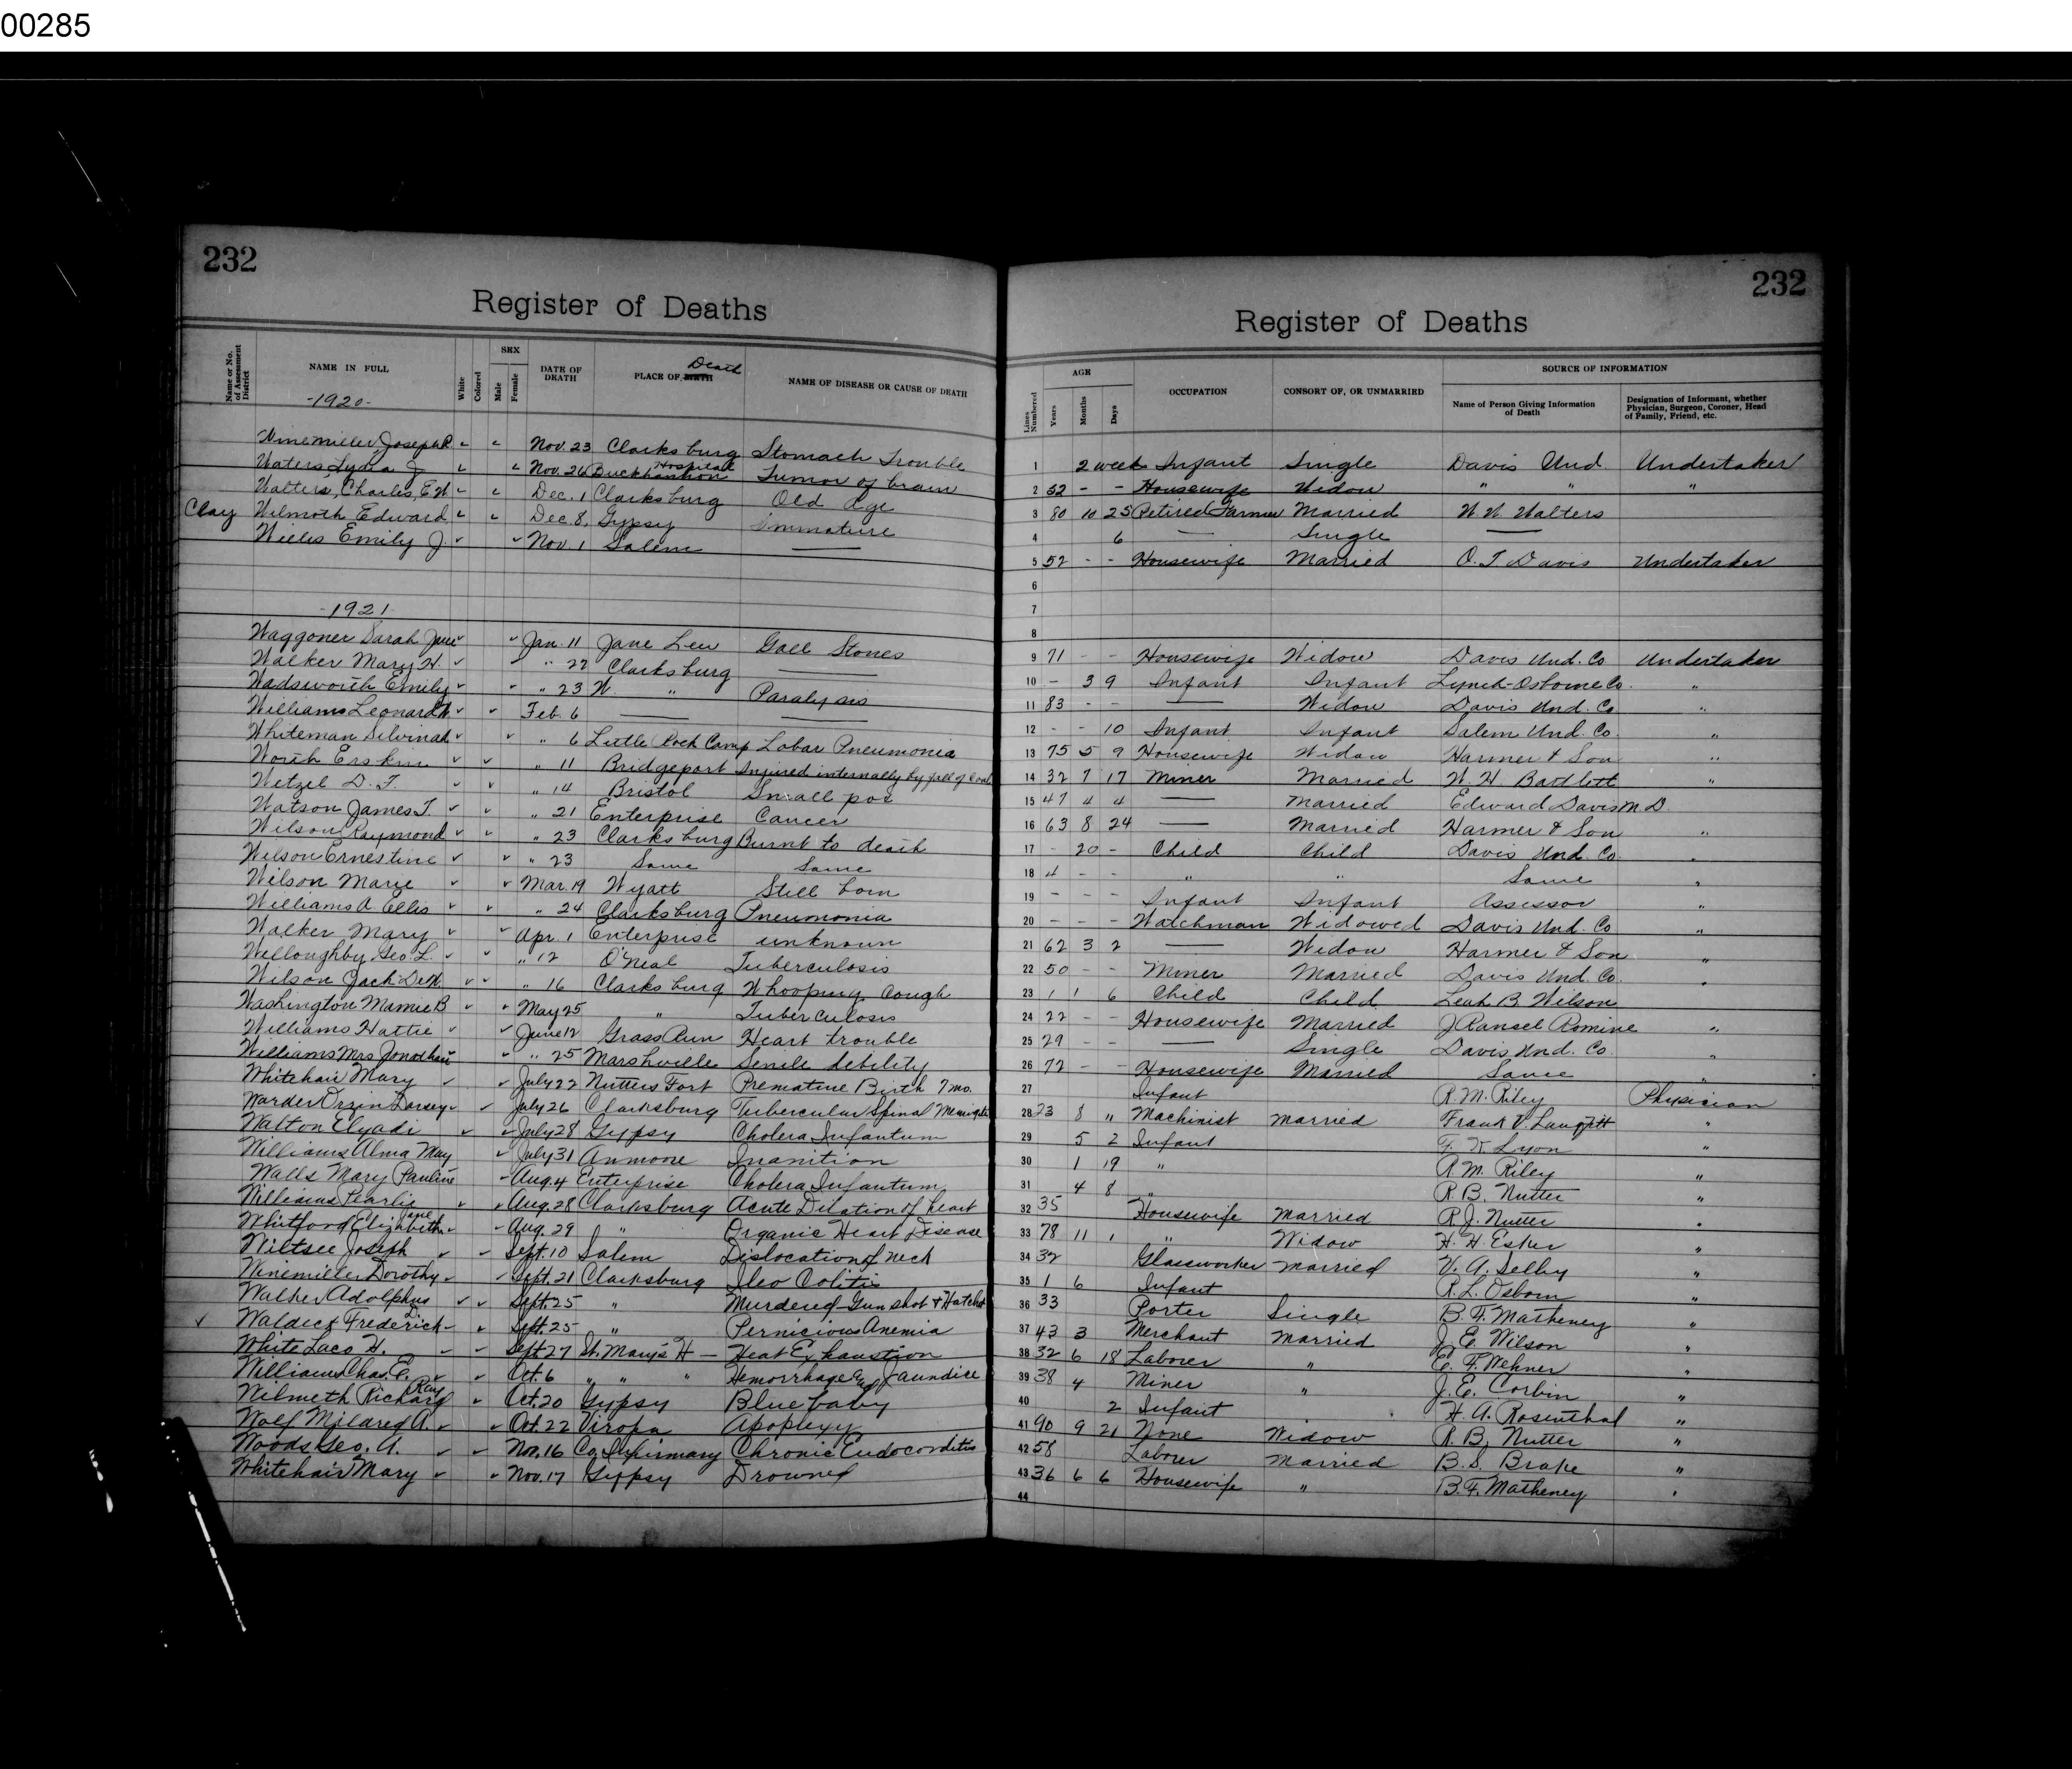 00285
232
Register of Deaths
Name or No. of Assessment District
NAME IN FULL
White
Colored
SEX
Male
Female
DATE OF DEATH
PLACE OF BIRTH Death
NAME OF DISEASE OR CAUSE OF DEATH
-1920-
Winemiller, Joseph Nov. 23 Clarksburg Stomach Trouble
Waters Lydia J Nov. 26 Buckhannon Hospital Tumor of brain
Walters, Charles, E W Dec. 1 Clarksburg Old Age
Clay Wilmoth Edward Dec. 8, Gypsy Immature
Willis Emily J. Nov. 1 Salem ——
-1921-
Waggoner Sarah Jane Jan. 11 Jane Lew Gall Stones
Walker Mary H. " 22 Clarksburg ——
Wadsworth Emily " 23 W. " Paralysis
Williams Leonard Feb. 6 —— ——
Whiteman Silvinah " 6 Little Rock Camp Lobar Pneumonia
Worth Erskin " 11 Bridgeport Injured internally by fall of coal
Wetzel D. F. " 14 Bristol Small pox
Watson James T. " 21 Enterprise Cancer
Wilson Raymond " 23 Clarksburg Burnt to death
Wilson Ernestine " 23 Same Same
Wilson Marie Mar. 19 Wyatt Still born
Williams A. Ellis " 24 Clarksburg Pneumonia
Walker Mary Apr. 1 Enterprise unknown
Welloughby, Geo. L. " 12 O'Neal Tuberculosis
Wilson Jack DeW. " 16 Clarksburg Whooping Cough
Washington Mamie B May 25 " Tuberculosis
Williams Hattie June 12 Grass Run Heart trouble
Williams Mrs Jonathan " 25 Marshville Senile debility
Whitehair Mary July 22 Nutters Fort Premature Birth 7 mo.
Warder Orzin Dorsey July 26 Clarksburg Tubercular Spinal
Walton Elyadi July 28 Gypsy Cholera Infantum
Williams Alma May July 31 Anmoore Inanition
Walls Mary Pauline Aug. 4 Enterprise Cholera Infantum
Williams Pearlie Aug. 28 Clarksburg Acute Dilation of heart
Whitford Elizabeth Jane Aug. 29 " Organic Heart Disease
Wiltsee Joseph Sept. 10 Salem Dislocation of neck
Winemiller Dorothy Sept. 21 Clarksburg Ileo Colitis
Walker Adolphus Sept. 25 " Murdered Gun shot + Hatchet
Waldeck Frederick Sept. 25 " Pernicious Anemia
White Laco H. Sept 27 St. Mary's H — Heat Exhaustion
Williams Chas. E. Oct. 6 " " " Hemorrhage Jaundice
Wilmeth Richard Ray Oct. 20 Gypsy Blue baby
Wolf Mildred A. Oct. 22 Viropa Apoplexy
Woods Geo. A. Nov. 16 Co. Infirmary Chronic Endocorditis
Whitehair Mary Nov. 17 Gypsy Drowned
232
Register of Deaths
Lines Numbered
AGE
Years
Months
Days
OCCUPATION
CONSORT OF, OR UNMARRIED
SOURCE OF INFORMATION
Name of Person Giving Information of Death
Designation of Informant, whether Physician, Surgeon, Coroner, Head of Family, Friend, etc.
1 2 weeks Infant Single Davis Und Undertaker
2 52 - - Housewife Widow " " "
3 80 10 25 Retired Farmer Married W. W. Walters
4 6 —— Single ——
5 52 - - Housewife Married O. T. Davis Undertaker
6
7
8
9 71 - - Housewife Widow Davis Und. Co Undertaker
10 - 3 9 Infant Infant Lynch-Osborne Co. "
11 83 - - —— Widow Davis Und. Co "
12 - - 10 Infant Infant Salem Und. Co. "
13 75 5 9 Housewife Widow Harmer & Son "
14 32 7 17 Miner Married W. H. Bartlett "
15 47 4 4 —— Married Edward Davis M.D.
16 63 8 24 —— Married Harmer & Son "
17 - 20 - Child Child Davis Und. Co. "
18 4 - - " " Same "
19 - - - Infant Infant Assessor "
20 - - - Watchman Widowed Davis Und. Co "
21 62 3 2 —— Widow Harmer & Son "
22 50 - - Miner Married Davis Und. Co. "
23 1 1 6 Child Child Leah B. Wilson
24 22 - - Housewife Married J Ransel Romine "
25 29 - - —— Single Davis Und. Co. "
26 72 - - Housewife Married Same "
27 Infant R. M. Riley Physician
28 23 8 " Machinist married Frank V. Langfitt "
29 5 2 Infant F. W. Lyon "
30 1 19 " R. M. Riley "
31 4 8 " R. B. Nutter "
32 35 Housewife married R. J. Nutter "
33 78 11 1 " Widow H. H. Esker "
34 32 Glassworker married V. A. Selby "
35 1 6 Infant R. L. Osborn "
36 33 Porter Single B. F. Matheney "
37 43 3 Merchant married J. E. Wilson "
38 32 6 18 Laborer " E. F. Wehner "
39 38 4 Miner " J. E. Corbin "
40 2 Infant H. A. Rosenthal "
41 90 9 21 None Widow R. B. Nutter "
42 58 Laborer married B. S. Brake "
43 36 6 6 Housewife " B. F. Matheney "
44